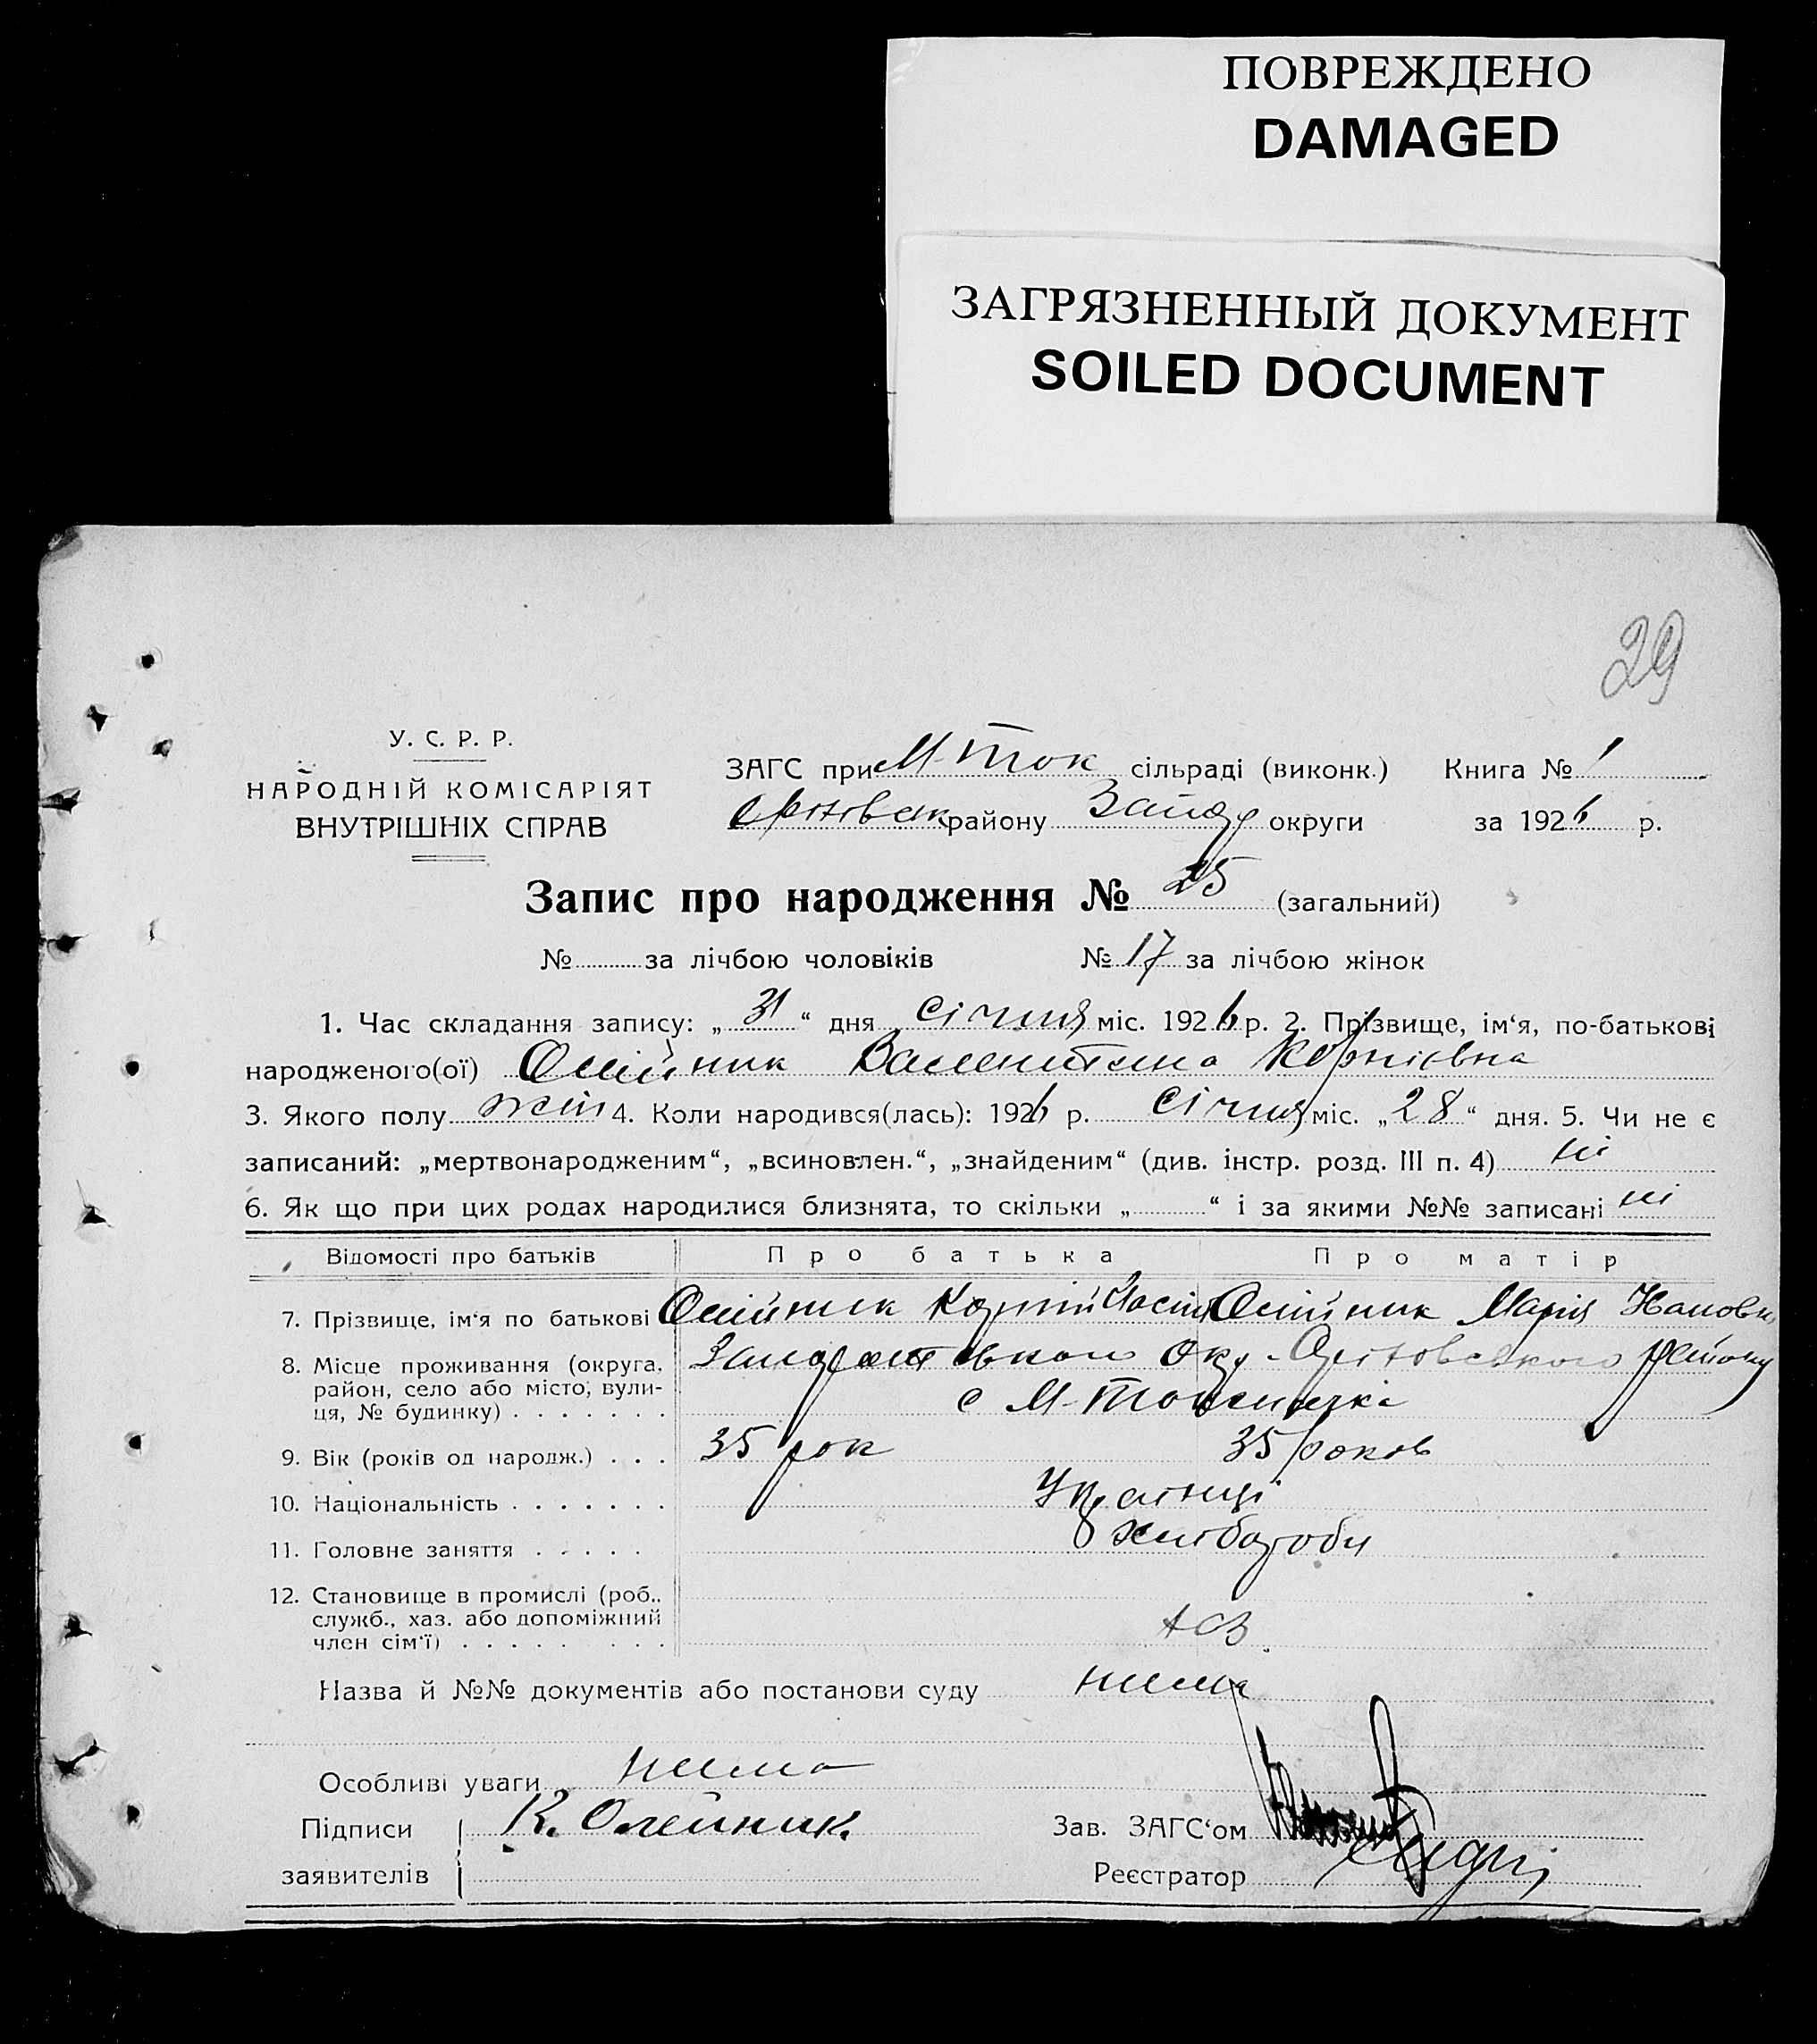 ПОВРЕЖДЕНО
DAMAGED
ЗАГРЯЗНЕННЫЙ ДОКУМЕНТ
SOILED DOCUMENT
29
У. С. Р. Р.
НАРОДНІЙ КОМІСАРІЯТ
ВНУТРІШНІХ СПРАВ
ЗАГС при М-Ток сільраді (виконк.) Книга № 1
району Запор округи за 1926 р.
Запис про народження № 25 (загальний)
№ за лічбою чоловіків № 17 за лічбою жінок
1. Час складання запису: „31“ дня січня міс. 1926 р. 2. Прізвище, ім‘я, по-батькові
народженого(ої) Олійник Валентина Корніевна
3. Якого полу жін 4. Коли народився(лась): 1926 р. січня міс. „28“ дня. 5. Чи не є
записаний: „мертвонародженим“, „всиновлен.“, „знайденим“ (див. інстр. розд. III п. 4) ні
6. Як що при цих родах народилися близнята, то скільки „ “ і за якими №№ записані ні
Відомості про батьків Про батька Про матір
7. Прізвище, ім‘я по батькові Олійник Корній Олійник Марія
8. Місце проживання (округа, район, село або місто, вули- ця, № будинку) Окр. Оріховського району
с М-Токмачка
9. Вік (років од народж.) 35 рок 35 роков
10. Національність Українці
11. Головне заняття хлібороби
12. Становище в промислі (роб., служб., хаз. або допоміжний член сім‘ї) хоз
Назва й №№ документів або постанови суду нима
Особливі уваги нима
Підписи К. Олейник. Зав. ЗАГС‘ом
заявителів Реєстратор